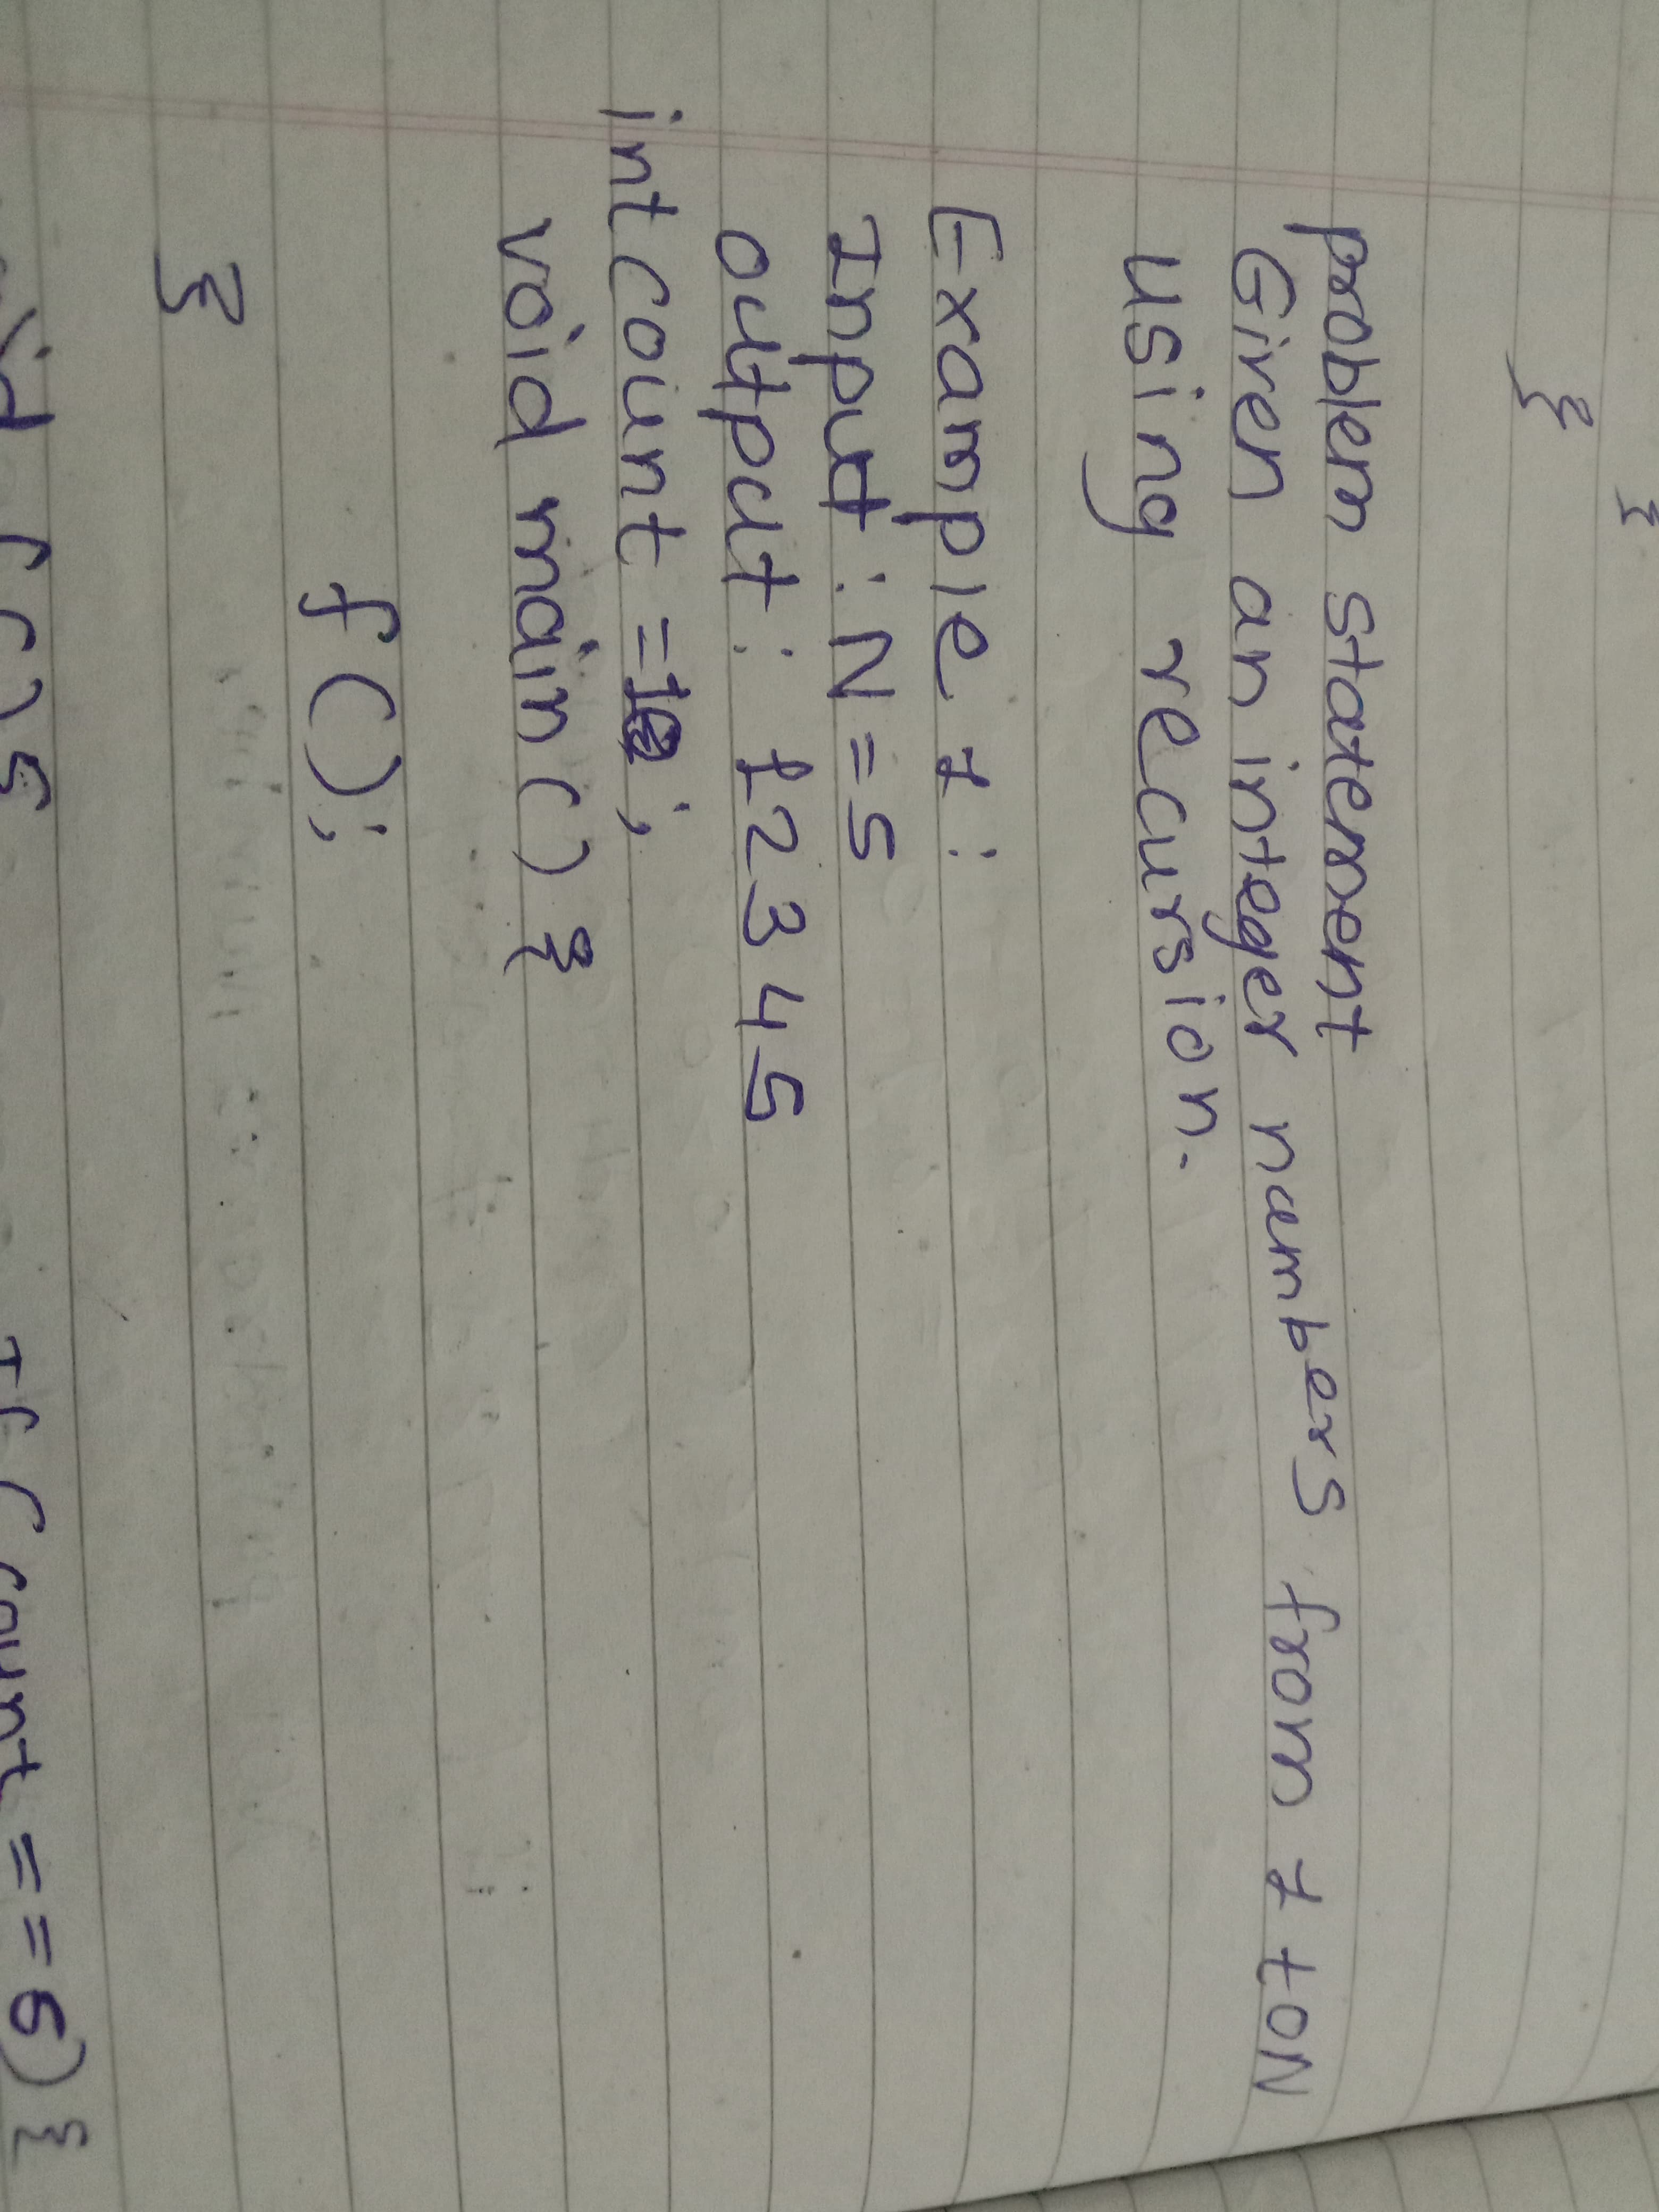 }
}
problem statement
Given an integer numbers from 1 to N
using recursion.
Example 1 :
Input : N = 5
output : 1 2 3 4 5
int count = 1 ;
void main ( ) {
f ( ) ;
}
void f ( ) {
If ( count == 6 ) {